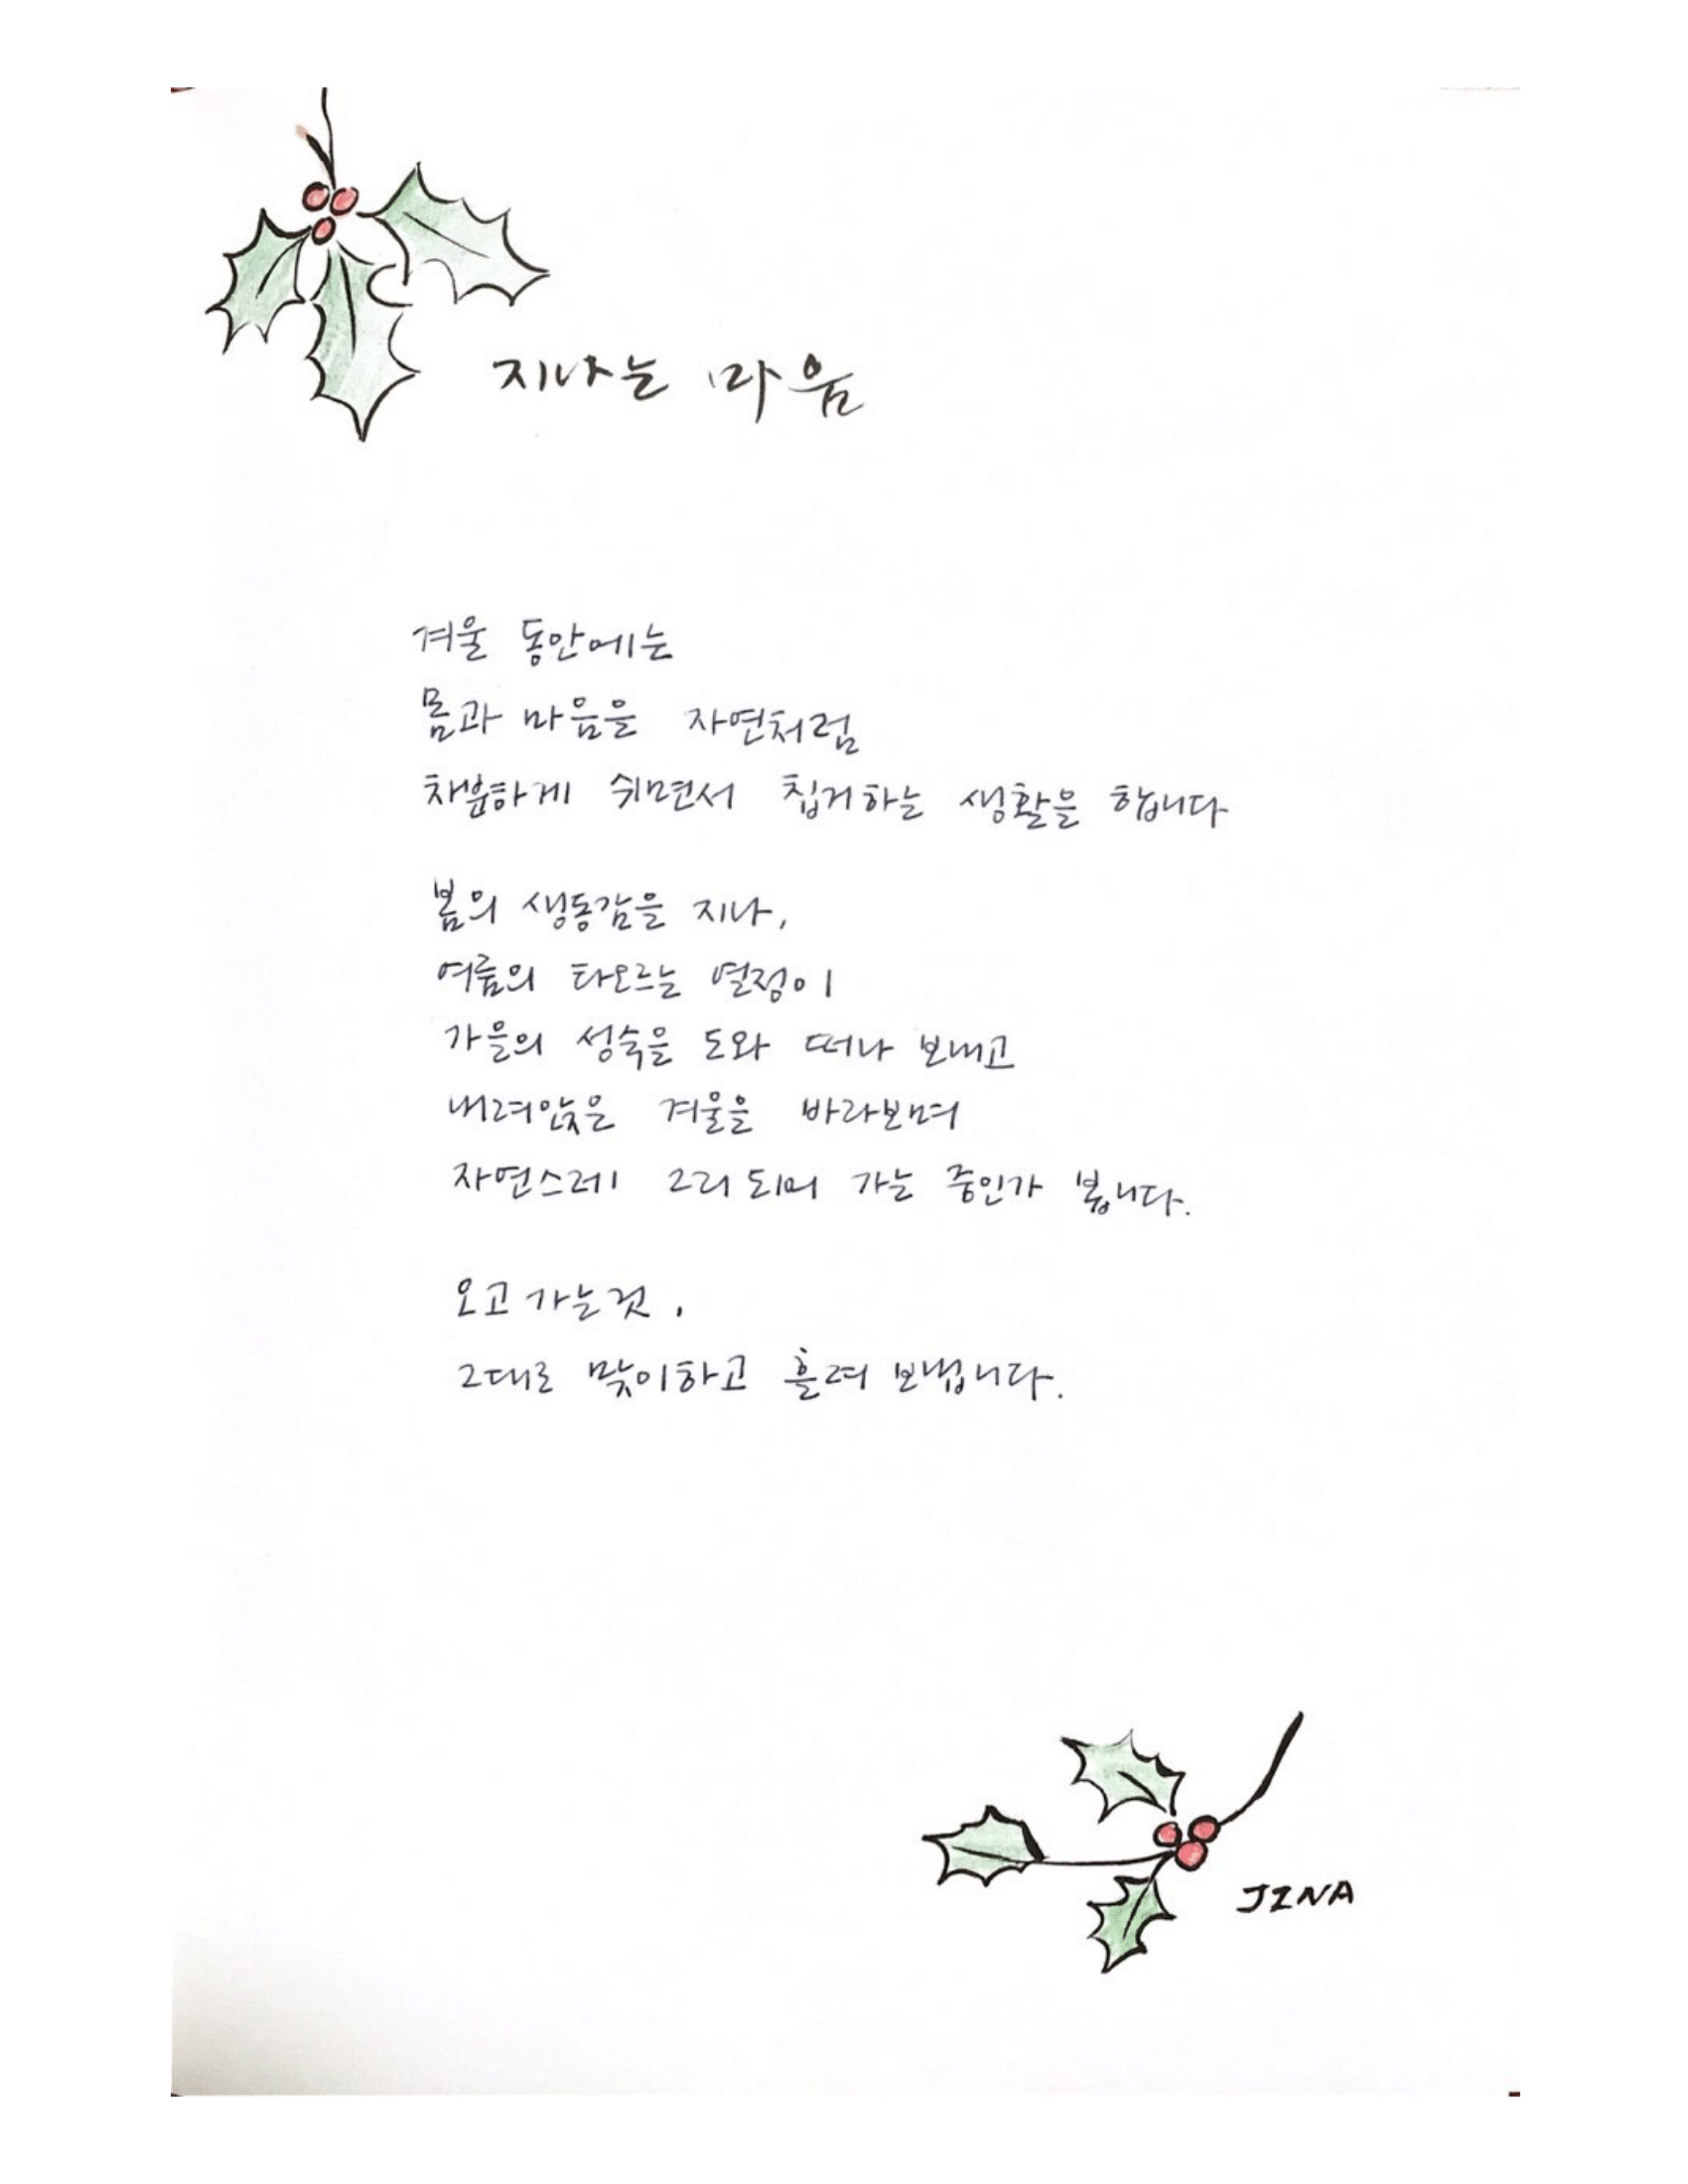 지나는 마음
겨울 동안에는
몸과 마음을 자연처럼
차분하게 쉬면서 칩거하는 생활을 합니다
봄의 생동감을 지나,
여름의 타오르는 열정이
가을의 성숙을 도와 떠나 보내고
내려앉은 겨울을 바라보며
자연스레 그리 되며 가는 중인가 봅니다.
오고 가는것,
그대로 맞이하고 흘려 보냅니다.
JINA